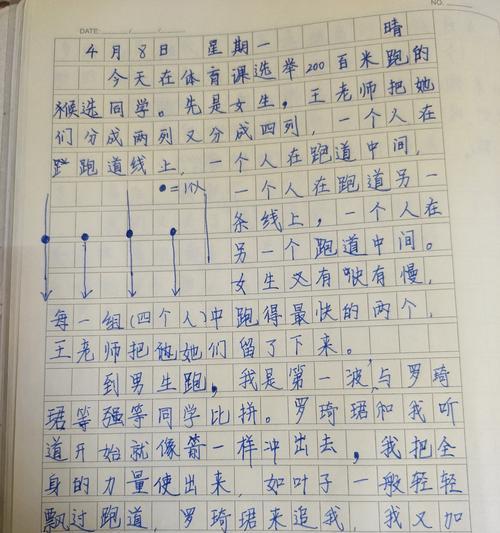 DATE:
NO.
4月8日 星期一 晴
今天在体育课选举200百米跑的
猴选同学。先是女生,王老师把她
们分成两列又分成四列,一个人在
跑道线上,一个人在跑道中间,
●=1人
一个人在跑道另一
条线上,一个人在
另一个跑道中间。
女生又有快有慢,
每一组(四个人)中跑得最快的两个,
王老师把她们留了下来。
到男生跑,我是第一波,与罗琦
珺等强等同学比拼。罗琦珺和我听
道开始就像箭一样冲出去,我把全
身的力量使出来,如叶子一般轻轻
飘过跑道,罗琦珺来追我,我又加